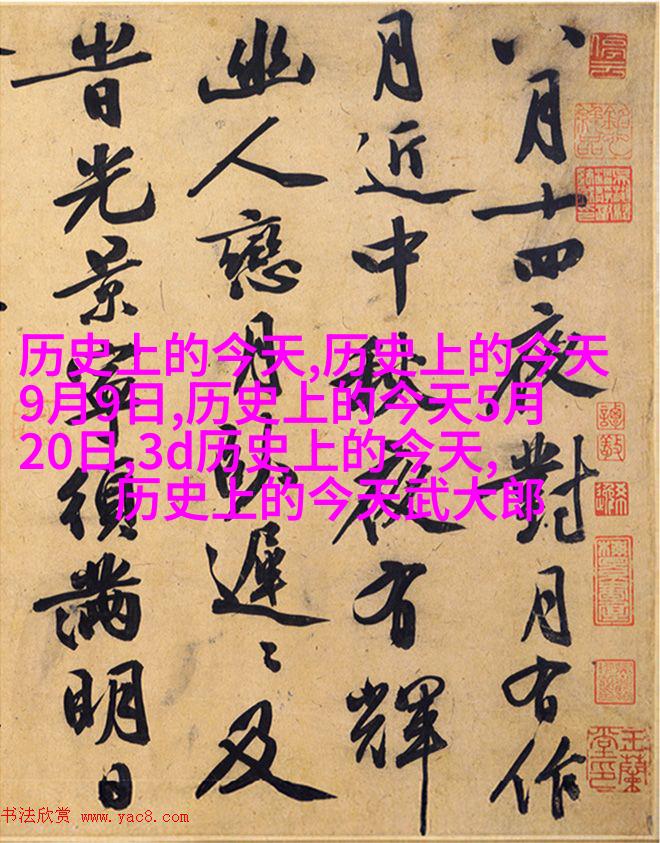 八月十四夜對月有作
月近中秋夜有輝
幽人戀月臥遲〻及
旹光景寧須滿明日
历史上的今天,历史上的今天
9月9日,历史上的今天5月
20日,3d历史上的今天,
历史上的今天武大郎
停雲
玉蘭堂印
书法欣赏 www.yac8.com